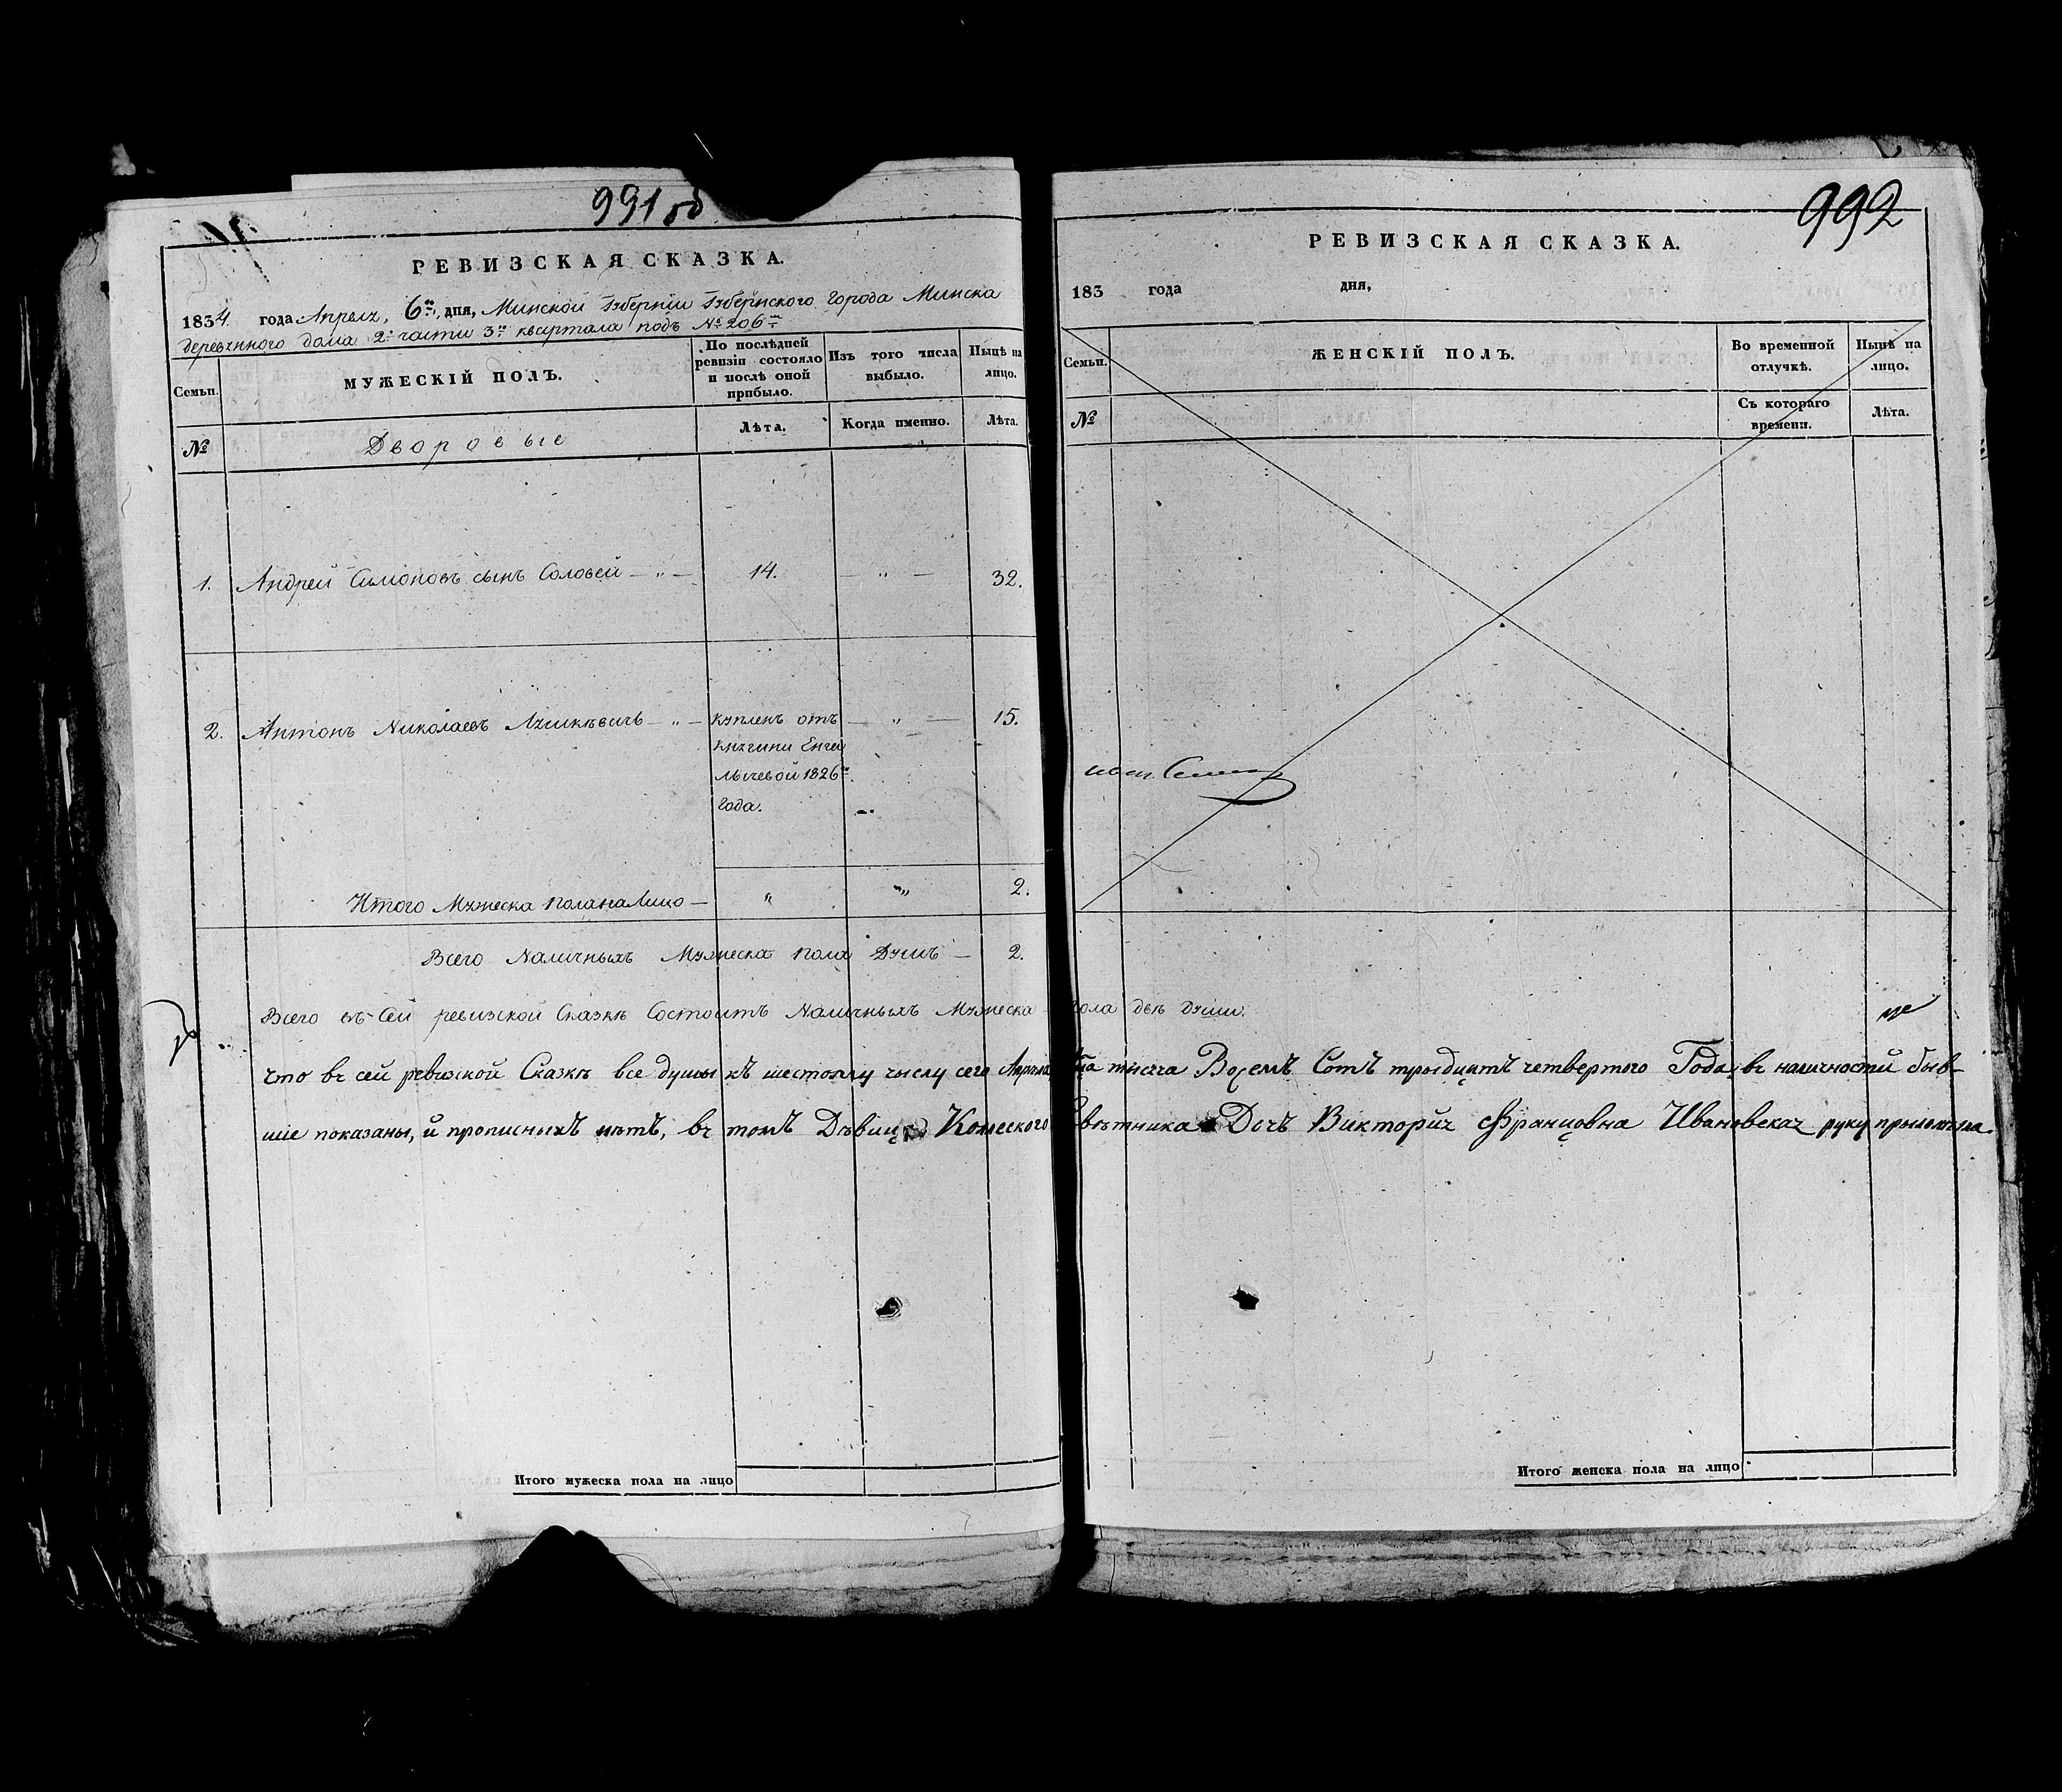 991 об
РЕВИЗСКАЯ СКАЗКА.
1834 года Апреля, 6го, дня, Минской Губерніи Губернского Города Минска
деревяннго дома 2й части 3го квартала подъ № 206м
Семьи.
МУЖЕСКІЙ ПОЛЪ.
По послѣдней ревизіи состояло и послѣ оной прибыло.
Изъ того числа выбыло.
Нынѣ на лицо.
№
Дворовые
Лѣта.
Когда именно.
Лѣта.
1. Андрей Симоновъ сынъ Соловей — „ — 14. — „ — 32.
2. Антонъ Николаевъ — „ — купленъ отъ — „ — 15.
княгини Енга
лычевой 1826го
года.
Итого Мужеска пола на Лицо — „ „ 2.
Всего Наличныхъ Мужеска пола Душъ — 2.
992
РЕВИЗСКАЯ СКАЗКА.
183 года дня,
Семьи.
ЖЕНСКІЙ ПОЛЪ.
Во временной отлучкѣ.
Нынѣ на лицо.
№
Съ котораго времени.
Лѣта.
Всего въ Сей ревизской Сказкѣ Состоитъ Наличныхъ Мужеска пола двѣ души.
что въ сей ревизской Сказкѣ все душы къ шестому числу сего Апрѣля тысяча Восемъ Сотъ трыдцатъ четвертого Года, въ наличности быв-
шіе показаны, и прописныхъ нѣтъ, въ томъ Дѣвица Колеского Совѣтника Дочъ Викторія Францовна Ивановская руку прыложыла.
Итого мужеска пола на лицо
Итого женска пола на лицо